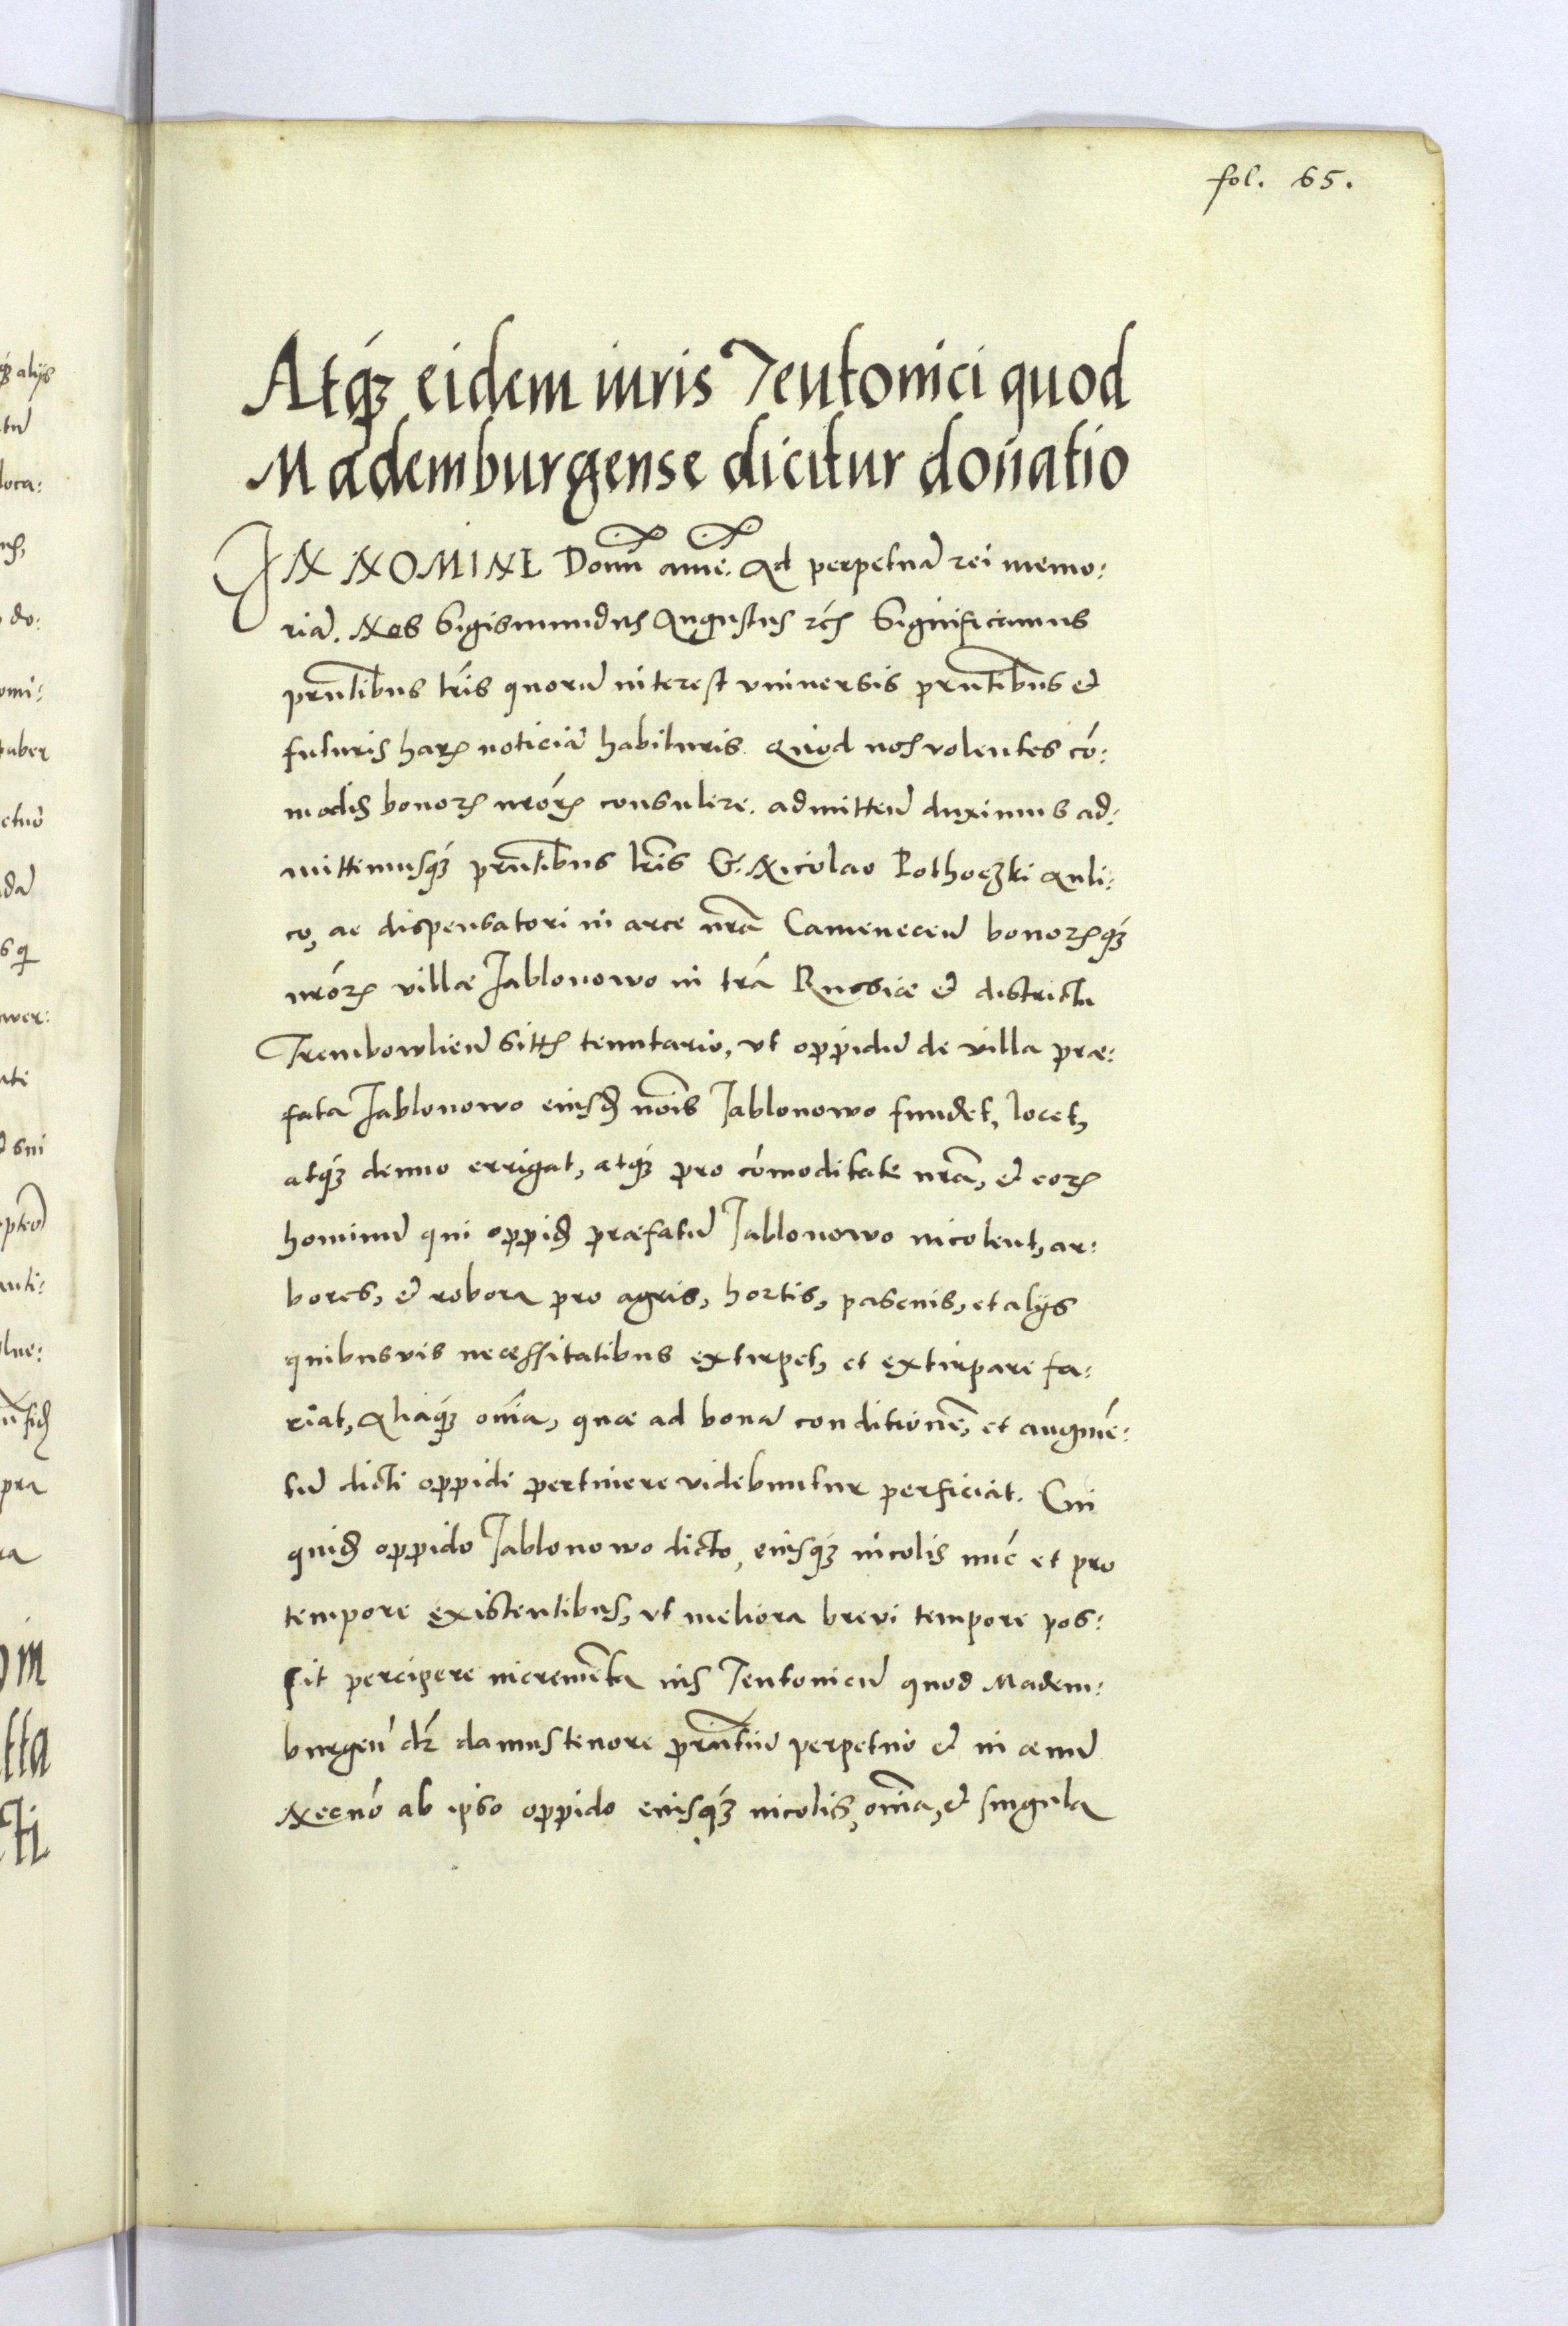 fol. 65.
Atq́ꝫ eidem iuris Teutonici quod
Mademburgense dicitur donatio
IN NOMINE Domī amē. Ad perpetuā rei memo:
riā. Nos Sigismundus Augustus rc̃ꝭ Significamus
prñtibus lr̃is quorū interest vniuersis prñtibus et
futuris harꝝ noticiā habituris. Quod nos volentes cō:
modis bonorꝝ nrórꝝ consulere. admitteñ duximus ad:
mittimusq́ꝫ prñtibus lr̃is G. Nicolao Pothoczki Auli:
co, ac dispensatori in arce nrã Cameneceñ bonorꝝq́ꝫ
nrórꝝ villæ Jablonowo in trã Russiæ et districtu
Trembowlieñ sittꝝ tenutario, vt oppidū de villa præ:
fata Jablonowo eiusdꝫ nōis Jablonowo fundet, locet,
atq́ꝫ denuo errigat, atq́ꝫ pro cōmoditate nrã, et eorꝝ
hominū qui oppidꝫ præfatū Jablonowo incolent, ar:
bores, et robora pro agris, hortis, pascuis, et alijs
quibusvis necessitatibus extirpet, et extirpare fa:
ciat, Aliaq́ꝫ oīa, quæ ad bonā conditionē, et augmē:
tū dicti oppidi pertinere videbuntur perficiat. Cui
quidꝫ oppido Jablonowo dicto, eiusq́ꝫ incolis nūc et pro
tempore existentibus, vt meliora brevi tempore pos:
sit percipere incremēta ius Teutonicū quod Madem:
burgeñ dr̃ damus tenore prñtiū perpetuo et in æuū
Necnō ab ipso oppido eiusq́ꝫ incolis, oīa, et singula